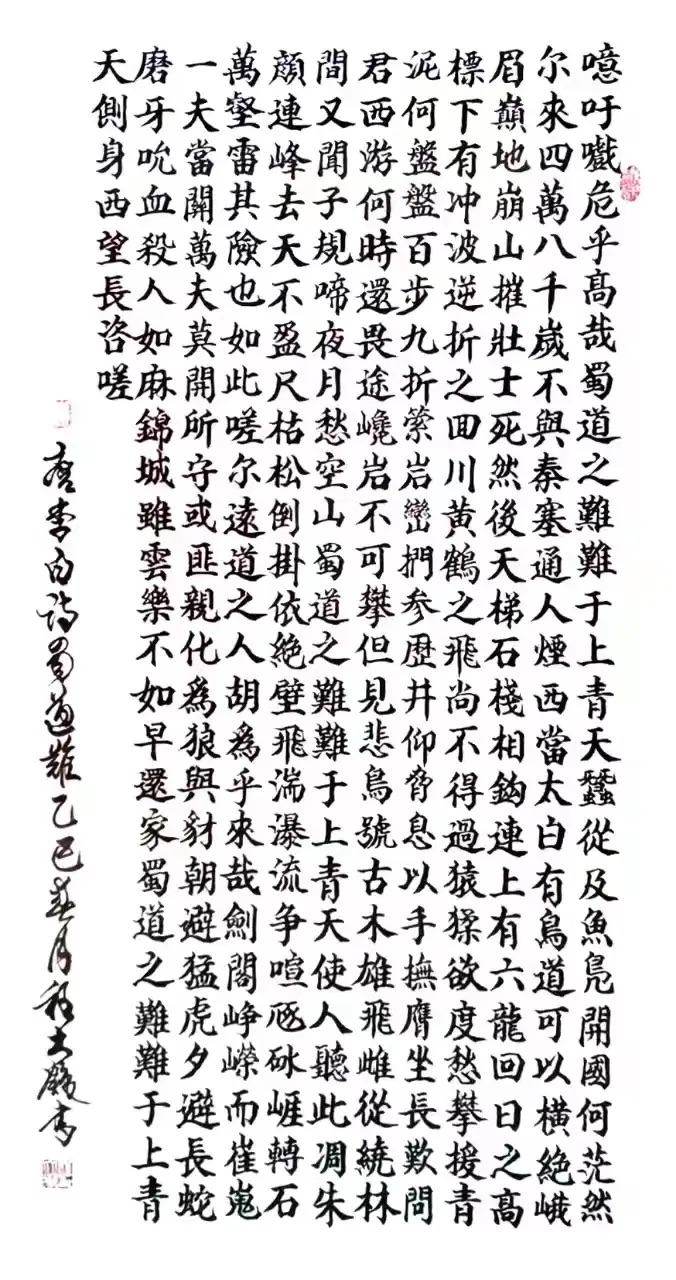 噫吁嚱危乎高哉蜀道之難難于上青天蠶從及魚鳧開國何茫然
尔來四萬八千歲不與秦塞通人煙西當太白有鳥道可以橫絕峨
眉巔地崩山摧壯士死然後天梯石棧相鈎連上有六龍回日之高
標下有冲波逆折之回川黃鶴之飛尚不得過猿猱欲度愁攀援青
泥何盤盤百步九折縈岩巒捫参歷井仰脅息以手撫膺坐長歎問
君西游何時還畏途巉岩不可攀但見悲鳥號古木雄飛雌從繞林
間又聞子規啼夜月愁空山蜀道之難難于上青天使人聽此凋朱
顔連峰去天不盈尺枯松倒掛依絕壁飛湍瀑流争喧豗砯崖轉石
萬壑雷其險也如此嗟尔遠道之人胡為乎來哉劍閣崢嶸而崔嵬
一夫當關萬夫莫開所守或匪親化為狼與豺朝避猛虎夕避長蛇
磨牙吮血殺人如麻錦城雖雲樂不如早還家蜀道之難難于上青
天側身西望長咨嗟
唐李白詩蜀道難乙巳春月書